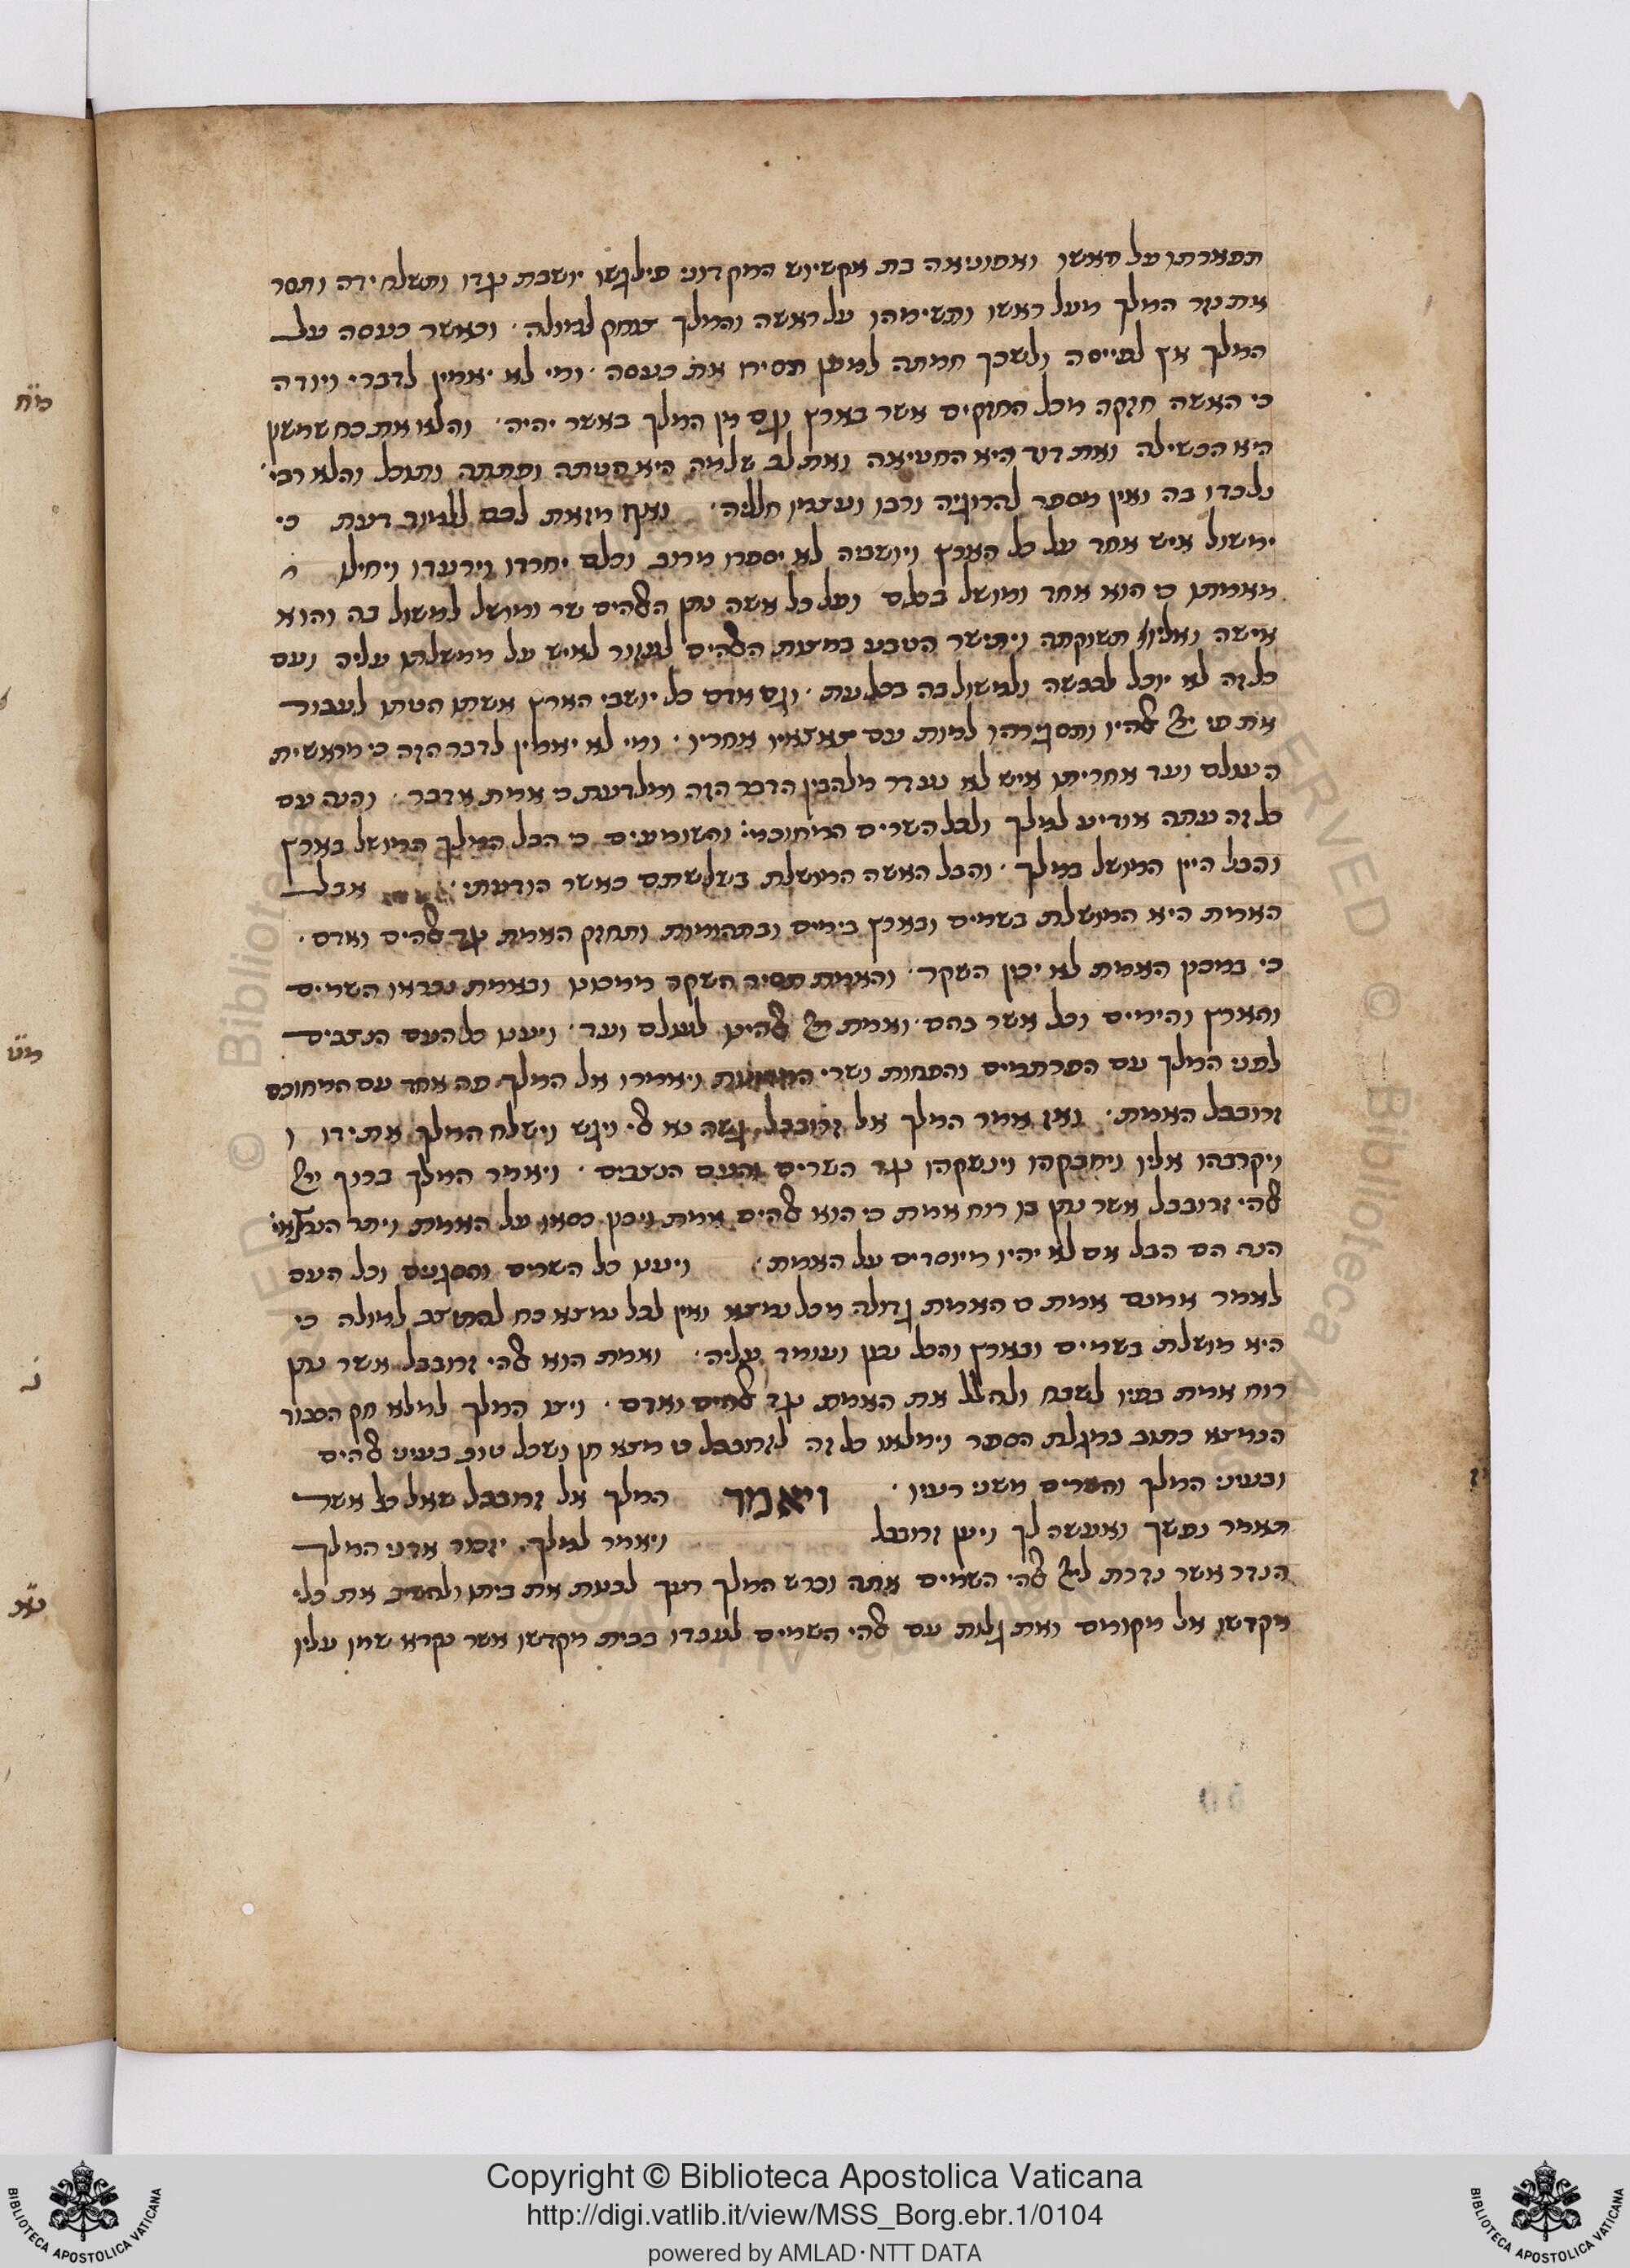 תפארתו על ראשו ואפוניאה בת אקשיוש המקדוני פילגשו יושבת נגדו ותשלח ידה ותסר
את נזר המלך מעל ראשו ותשימהו על ראשה והמלך צוחק למולה. וכאשר כעסה על
המלך אץ לפייסה ולשכך חמתה למען תסיר את כעסה. ומי לא יאמין לדברי ויודה
כי האשה חזקה מכל החזקים אשר בארץ וגם מן המלך באשר יהיה. והלא את כח שמשון
היא הכשילה ואת דוד היא החטיאה ואת לב שלמה היא הטתה ופתתה ותוכל והלא רבי'
נלכדו בה ואין מספר להרוגיה ורבו ועצמו חלליה. ואף מזאת לכם ללמוד דעת כי
ימשול איש אחד על כל הארץ ויושביה לא יספרו מרוב וכלם יחרדו וירעדו ויחילו
מאמתו כי הוא אחד ומושל בכלם ועל כל אשה נתן האלהים שר ומושל למשול בה והוא
אישה ואליו תשוקתה ויתישר הטבע במצות האלהים לעזור לאיש על ממשלתו עליה ועם
כל זה לא יוכל לכבשה ולמשול בה בכל עת. וגם אדם כל יושבי הארץ אשתו הטתו לעבור
את פי יי אלהיו ותסגירהו למות עם צאצאיו אחריו. ומי לא יאמין לדבר הזה כי מראשית
העולם ועד אחריתו איש לא נעדר מלהבין הדבר הזה ומלדעת כי אמת אדבר. והנה עם
כל זה עתה אודיע למלך ולכל השרים המחוכמי' והשומעים כי הבל המלך המושל בארץ
והבל היין המושל במלך. והבל האשה המושלת בשלשתם כאשר הודעתי. אבל
האמת היא המושלת בשמים ובארץ בימים ובתהומות ותחזק האמת נגד אלהים ואדם.
כי במכון האמת לא יכון השקר. והאמת תסיר השקר ממכונו ובאמת נבראו השמים
והארץ והימים וכל אשר בהם. ואמת יי אלהינו לעולם ועד. ויענו כל העם הנצבים
לפני המלך עם הפרתמים והפחות ושרי ויאמרו אל המלך פה אחד עם המחוכם
זרובבל האמת. ואז אמר המלך אל זרובבל גשה נא אלי ויגש וישלח המלך את ידו ו
ויקרבהו אליו ויחבקהו וינשקהו נגד השרים והעם הנצבים. ויאמר המלך ברוך יי
אלהי זרובבל אשר נתן בו רוח אמת כי הוא אלהים אמת ויכון כסאו על האמת ויתר הנמצאי'
הנה הם הבל אם לא יהיו מיוסדים על האמת. ויענו כל השרים והסגנים וכל העם
לאמר אמנם אמת כי האמת גדולה מכל נמצא ואין לכל נמצא כח להתיצב למולה כי
היא מושלת בשמים ובארץ והכל נכון ועומד עליה. ואמת הוא אלהי זרובבל אשר נתן
רוח אמת בפיו לשבח ולהלל את האמת נגד אלהים ואדם. ויצו המלך למלא חק הסכור
הנמצא כתוב במגלת הספר וימלאו כל זה לזרובבל כי מצא חן ושכל טוב בעיני אלהים
ובעיני המלך והשרים משני רעיו. ויאמר המלך אל זרובבל שאל כל אשר
תאמר נפשך ואעשה לך ויען זרובבל ויאמר למלך. יזכור אדני המלך
הנדר אשר נדרת ליי אלהי השמים אתה וכרש המלך רעך לבנות את ביתו ולהשיב את כלי
מקדשו אל מקומם ואת גלות עם אלהי השמים לעבדו בבית מקדשו אשר נקרא שמו עליו
מ״ח
מ״ט
נ'
נ״א
Copyright © Biblioteca Apostolica Vaticana
http://digi.vatlib.it/view/MSS_Borg.ebr.1/0104
powered by AMLAD·NTT DATA
BIBLIOTECA APOSTOLICA VATICANA
BIBLIOTECA APOSTOLICA VATICANA